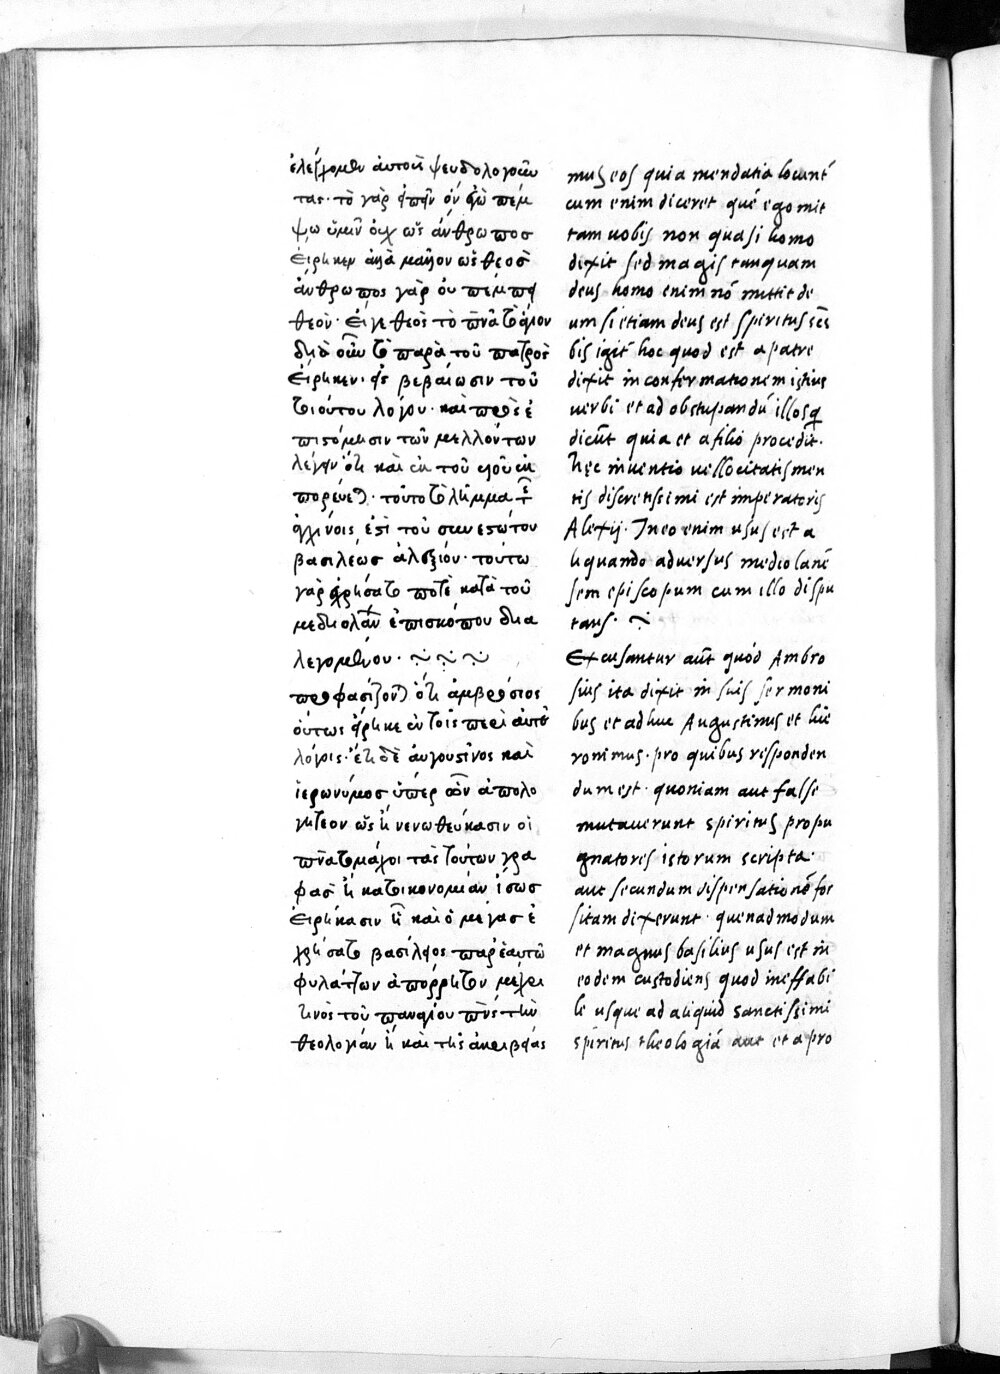 ἐλέγξομεν αὐτοὺς ψευδολογοῦν
τας· τὸ γὰρ εἰπεῖν ὃν ἐγὼ πέμ
ψω ὑμῖν οὐχ ὡς ἄνθρωπος
εἴρηκεν ἀλλὰ μᾶλλον ὡς θεὸς
ἄνθρωπος γὰρ οὐ πέμπει
θεόν· εἴγε θεὸς τὸ πνα τὸ ἅγιον
διὸ οὖν τὸ παρὰ τοῦ πατρὸς
εἴρηκεν· εἰς βεβαίωσιν τοῦ
τοιούτου λόγου· καὶ πρὸς ἐ
πιστόμησιν τῶν μελλόντων
λέγειν ὅτι καὶ ἐκ τοῦ υἱοῦ ἐκ
πορεύεται· τοῦτο τὸ λῆμμα τῆς
ἀγχινοίς ἐστὶ τοῦ συνεστώτου
βασιλέως ἀλεξίου· τούτω
γὰρ ἐχρήσατο ποτὲ κατὰ τοῦ
μεδιολάν ἐπισκόπου δια
λεγομένου·
προφασίζονται ὅτι ἀμβρόσιος
οὕτως εἴρηκε ἐν τοῖς περὶ αὐτοῦ
λόγοις· ἔτι δὲ ἀυγουστῖνος καὶ
ἱερωνύμος ὑπὲρ ὧν ἀπολο
γητέον ὡς ἢ νενωθεύκασιν οἱ
πνατομάχοι τὰς τούτων γρα
φὰς ἢ κατοικονομίαν ἴσως
εἰρήκασιν ᾗ καὶ ὁ μέγας ἐ
χρήσατο βασίλειος παρ ἑαυτῷ
φυλάττων ἀπόρρητον μέχρι
τινὸς τοῦ παναγίου πνς τὴν
θεολογίαν ἢ καὶ τῆς ἀκριβείας
mus eos quia mendatia locunt
cum enim diceret quē ego mit
tam uobis non quasi homo
dixit sed magis tanquam
deus homo enim nō mittit de
um si etiam deus est spiritus scs
bis igit hoc quod est a patre
dixit in confermationem istius
uerbi et ad obstupandū illos q
dicūt quia et a filio procedit·
hęc inuentio uellocitatis men
tis discretissimi est imperatoris
Alexij· In eo enim usus est a
liquando aduersus mediolanē
sem episcopum cum illo dispu
tans·
Excusantur aūt quod Ambro
sius ita dixit in suis sermoni
bus et adhuc Augustinus et hie
ronimus· pro quibus responden
dum est· quoniam aut false
mutauerunt spiritus propu
gnatores istorum scripta·
aut secundum dispensationē for
sitam dixerunt· quenadmodum
et magnus basilius usus est in
eodem custodiens quod ineffabi
le usque ad aliquid sanctissimi
spiritus theologiā aut et a pro